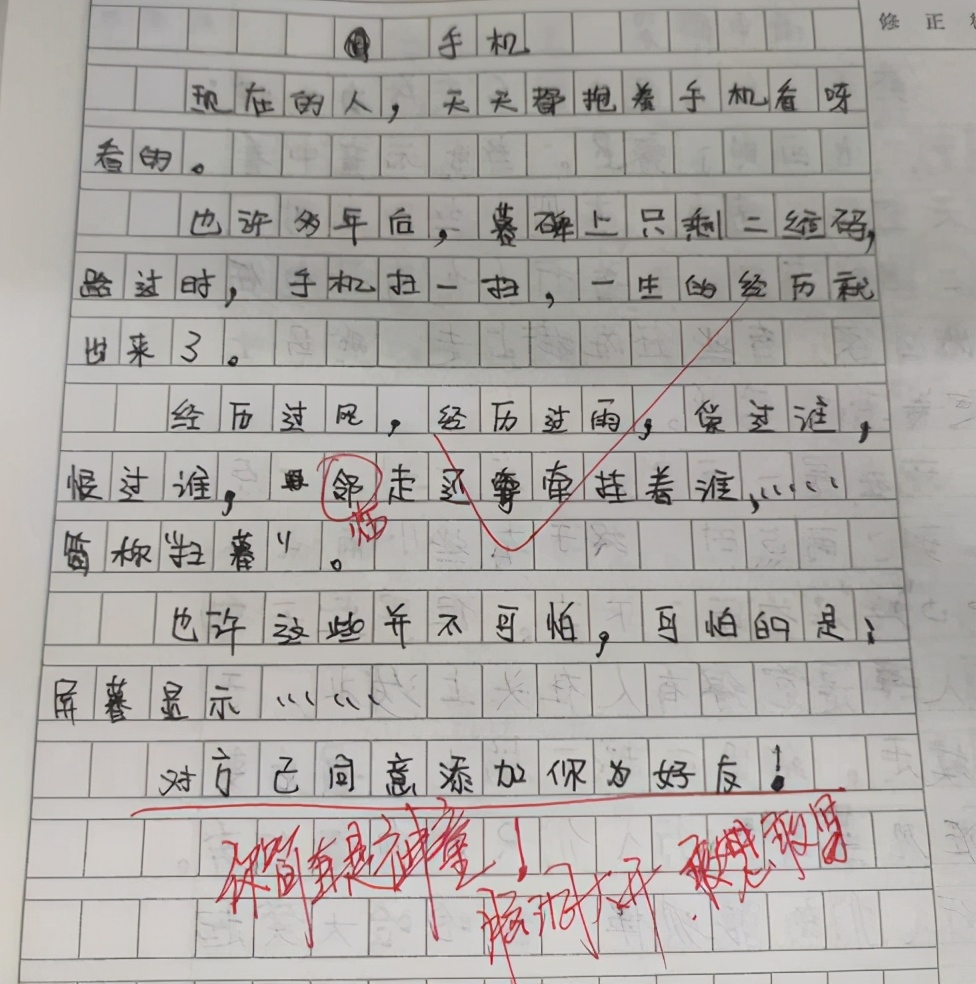 修正
手机
现在的人，天天都抱着手机看呀
看的。
也许多年后，暮碑上只剩二维码，
路过时，手机扫一扫，一生的经历就
出来了。
经历过风，经历过雨，爱过谁，
恨过谁，临邻走还牵挂着谁……
简称"扫暮"。
也许这些并不可怕，可怕的是：
屏暮显示……
对方已同意添加你为好友！
你简直是神童！
脑洞大开 敢想敢写